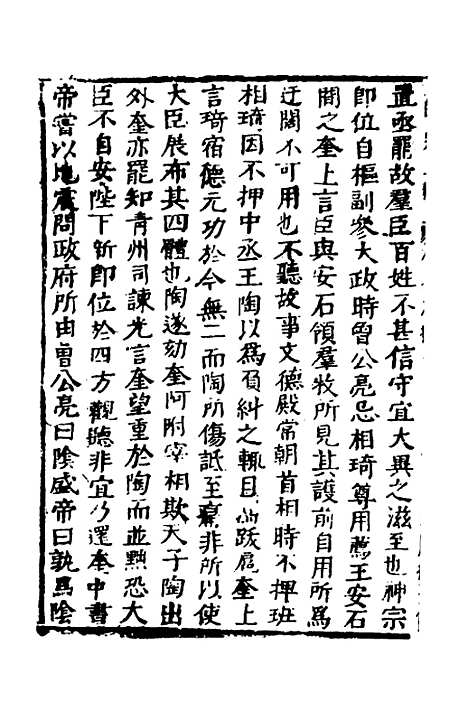 置亟罷故羣臣百姓不甚信守宜大異之滋至也神宗
即位自樞副參大政時曾公亮忌相琦尊用薦王安石
間之奎上言臣與安石領羣牧所見其護前自用所爲
迂闊不可用也不聽故事文德殿常朝首相時不押班
相琦因不押中丞王陶以爲負糾之輒目爲跋扈奎上
言琦宿德元功於今無二而陶所傷詆至襄非所以使
大臣展布其四體也陶遂劾奎阿附宰相欺天子陶出
外奎亦罷知青州司諫光言奎望重於陶而並黜恐大
臣不自安陛下新即位於四方觀聽非宜乃還奎中書
帝嘗以地震問政府所由曾公亮曰陰盛帝曰孰爲陰